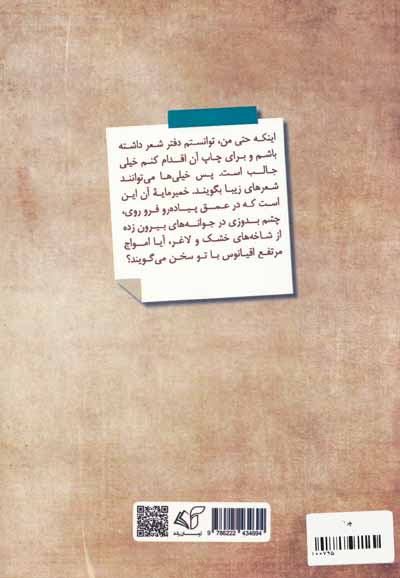 اینکه حتی من، توانستم دفتر شعر داشته
باشم و برای چاپ آن اقدام کنم خیلی
جالب است. پس خیلی‌ها می‌توانند
شعرهای زیبا بگویند. خمیرمایهٔ آن این
است که در عمق پیاده‌رو فرو روی،
چشم بدوزی در جوانه‌های بیرون زده
از شاخه‌های خشک و لاغر، آیا امواج
مرتفع اقیانوس با تو سخن می‌گویند؟
9 786222 434994